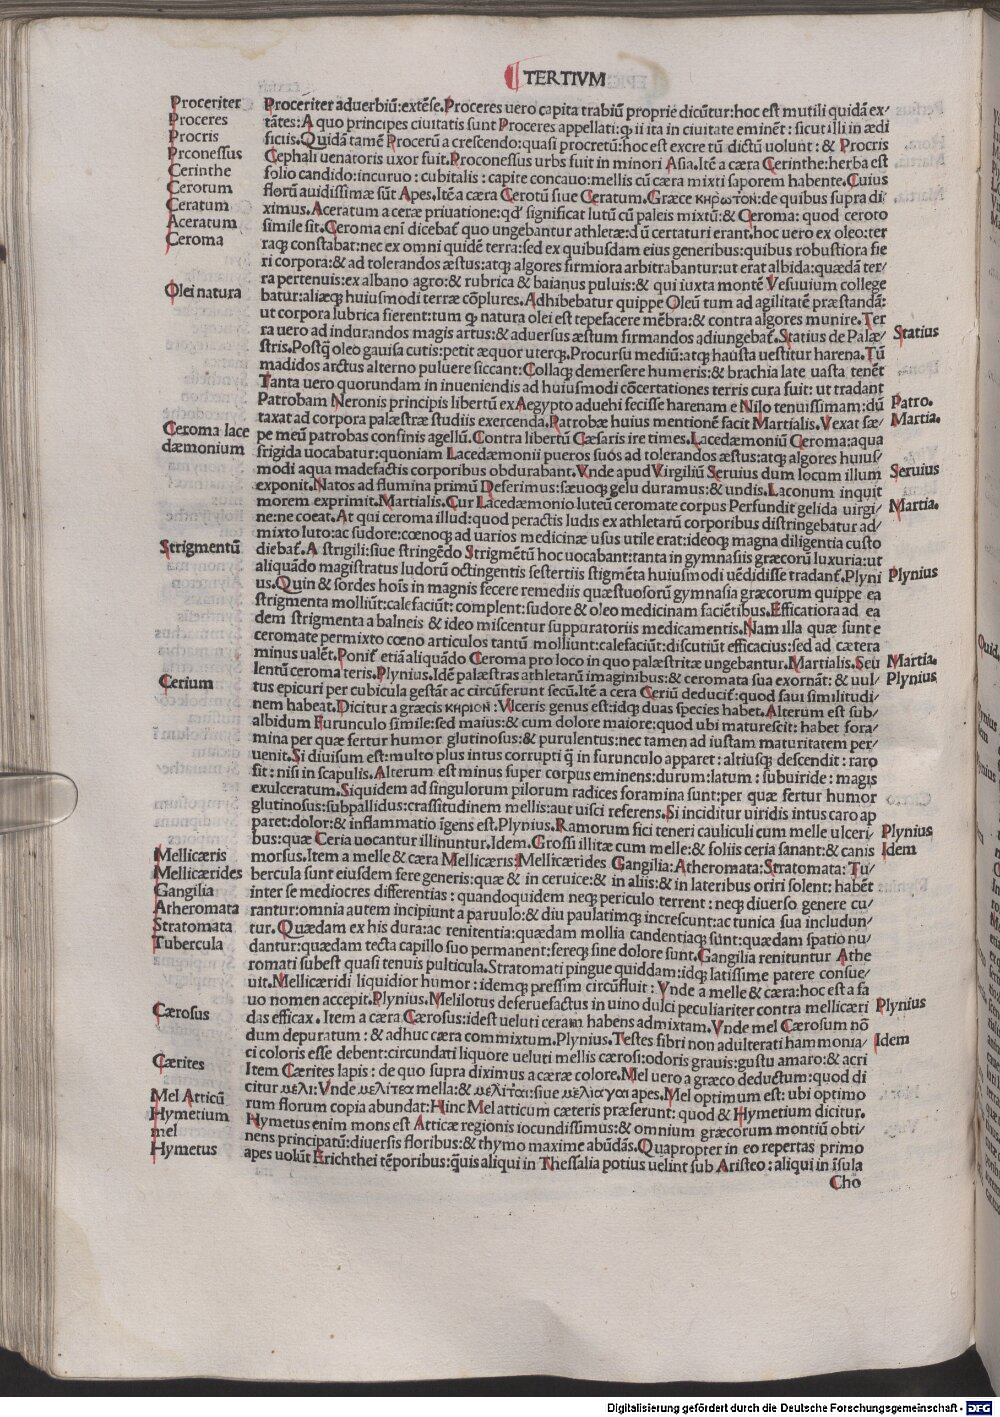 TERTIVM
Proceriter
Proceres
Procris
Prconessus
Cerinthe
Cerotum
Ceratum
Aceratum
Ceroma
Olei natura
Ceroma lace
dæmonium
Strigmentū
Cerium
Mellicæris
Mellicærides
Gangilia
Atheromata
Stratomata
Tubercula
Cærosus
Cærites
Mel Atticū
Hymetium
mel
Hymetus
Proceriter aduerbiū:extēse.Proceres uero capita trabiū proprie dicūtur:hoc est mutili quidā ex/
tātes:A quo principes ciuitatis sunt Proceres appellati:ꝙ ii ita in ciuitate eminēt: sicut illi in ædi
ficiis.Quidā tamē Procerū a crescendo:quasi procretū:hoc est excre tū dictū uolunt : & Procris
Cephali uenatoris uxor fuit.Proconessus urbs fuit in minori Asia.Itē a cæra Cerinthe:herba est
folio candido:incuruo : cubitalis : capite concauo:mellis cū cæra mixti saporem habente.Cuius
florū auidissimæ sūt Apes.Itē a cæra Cerotū siue Ceratum.Græce κηρωτον:de quibus supra di/
ximus.Aceratum a ceræ priuatione:qd' significat lutū cū paleis mixtū:& Ceroma: quod ceroto
simile sit.Ceroma eni dicebat̄ quo ungebantur athletæ:dū certaturi erant.hoc uero ex oleo:ter
raqꝫ constabat:nec ex omni quidē terra:sed ex quibusdam eius generibus:quibus robustiora fie
ri corpora:& ad tolerandos æstus:atqꝫ algores firmiora arbitrabantur:ut erat albida:quædā ter/
ra pertenuis:ex albano agro:& rubrica & baianus puluis:& qui iuxta montē Vesuuium college
batur:aliæqꝫ huiusmodi terræ cōplures.Adhibebatur quippe Oleū tum ad agilitatē præstandā:
ut corpora lubrica fierent:tum ꝙ natura olei est tepefacere mēbra:& contra algores munire.Ter
ra uero ad indurandos magis artus:& aduersus æstum firmandos adiungebat̄.Statius de Palæ/
stris.Postq̄ oleo gauisa cutis:petit æquor uterqꝫ.Procursu mediū:atqꝫ hausta uestitur harena.Tū
madidos arctus alterno puluere siccant:Collaqꝫ demersere humeris:& brachia late uasta tenēt
Tanta uero quorundam in inueniendis ad huiusmodi cōcertationes terris cura fuit: ut tradant
Patrobam Neronis principis libertū ex Aegypto aduehi fecisse harenam e Nilo tenuissimam:dū
taxat ad corpora palæstræ studiis exercenda.Patrobæ huius mentionē facit Martialis.Vexat sæ/
pe meū patrobas confinis agellū.Contra libertū Cæsaris ire times.Lacedæmoniū Ceroma:aqua
frigida uocabatur:quoniam Lacedæmonii pueros suos ad tolerandos æstus:atqꝫ algores huius/
modi aqua madefactis corporibus obdurabant.Vnde apud Virgiliū Seruius dum locum illum
exponit.Natos ad flumina primū Deferimus:sæuoqꝫ gelu duramus:& undis.Laconum inquit
morem exprimit.Martialis.Cur Lacedæmonio luteū ceromate corpus Perfundit gelida uirgi/
ne:ne coeat.At qui ceroma illud:quod peractis ludis ex athletarū corporibus distringebatur ad/
mixto luto:ac sudore:cœnoqꝫ ad uarios medicinæ usus utile erat:ideoqꝫ magna diligentia custo
diebat̄.A strigili:siue stringēdo Strigmētū hoc uocabant:tanta in gymnasiis græcorū luxuria:ut
aliquādo magistratus ludorū octingentis sestertiis stigmēta huiusmodi uēdidisse tradant̄.Plyni
us.Quin & sordes hoīs in magnis fecere remediis quæstuosorū gymnasia græcorum quippe ea
strigmenta molliūt:calefaciūt: complent:sudore & oleo medicinam faciētibus.Efficatiora ad ea
dem strigmenta a balneis & ideo miscentur suppuratoriis medicamentis.Nam illa quæ sunt e
ceromate permixto cœno articulos tantū molliunt:calefaciūt:discutiūt efficacius:sed ad cætera
minus ualēt.Ponit̄ etiā aliquādo Ceroma pro loco in quo palæstritæ ungebantur.Martialis.Seu
lentū ceroma teris.Plynius.Idē palæstras athletarū imaginibus:& ceromata sua exornāt: & uul/
tus epicuri per cubicula gestāt ac circūferunt secū.Itē a cera Ceriū deducit̄:quod faui similitudi/
nem habeat.Dicitur a græcis κηριον: Vlceris genus est:idqꝫ duas species habet.Alterum est sub/
albidum Furunculo simile:sed maius:& cum dolore maiore:quod ubi maturescit: habet fora/
mina per quæ fertur humor glutinosus:& purulentus:nec tamen ad iustam maturitatem per/
uenit.Si diuisum est:multo plus intus corrupti q̄ in furunculo apparet: altiusqꝫ descendit: raro
fit: nisi in scapulis.Alterum est minus super corpus eminens:durum:latum : subuiride : magis
exulceratum.Siquidem ad singulorum pilorum radices foramina sunt:per quæ fertur humor
glutinosus:subpallidus:crassitudinem mellis:aut uisci referens.Si inciditur uiridis intus caro ap
paret:dolor:& inflammatio īgens est.Plynius.Ramorum fici teneri cauliculi cum melle ulceri/
bus:quæ Ceria uocantur illinuntur.Idem.Grossi illitæ cum melle:& foliis ceria sanant:& canis
morsus.Item a melle & cæra Mellicæris:Mellicærides Gangilia:Atheromata:Stratomata: Tu/
bercula sunt eiusdem fere generis:quæ & in ceruice:& in aliis:& in lateribus oriri solent: habēt
inter se mediocres differentias : quandoquidem neqꝫ periculo terrent : neqꝫ diuerso genere cu/
rantur:omnia autem incipiunt a paruulo:& diu paulatimqꝫ increscunt:ac tunica sua includun/
tur.Quædam ex his dura:ac renitentia:quædam mollia candentiaqꝫ sūnt:quædam spatio nu/
dantur:quædam tecta capillo suo permanent:fereqꝫ sine dolore sunt.Gangilia renituntur Athe
romati subest quasi tenuis pulticula.Stratomati pingue quiddam:idqꝫ latissime patere consue/
uit.Mellicæridi liquidior humor : idemqꝫ pressim circūfluit : Vnde a melle & cæra:hoc est a fa
uo nomen accepit.Plynius.Melilotus deferuefactus in uino dulci peculiariter contra mellicæri
das efficax. Item a cæra Cærosus:idest ueluti ceram habens admixtam.Vnde mel Cærosum nō
dum depuratum : & adhuc cæra commixtum.Plynius.Testes fibri non adulterati hammonia/
ci coloris esse debent:circundati liquore ueluti mellis cærosi:odoris grauis:gustu amaro:& acri
Item Cærites lapis : de quo supra diximus a cæræ colore.Mel uero a græco deductum:quod di
citur μελι: Vnde μελιτεα mella:& μελιται:siue μελιαγαι apes.Mel optimum est: ubi optimo
rum florum copia abundat:Hinc Mel atticum cæteris præferunt: quod & Hymetium dicitur.
Hymetus enim mons est Atticæ regionis iocundissimus:& omnium græcorum montiū obti/
nens principatū:diuersis floribus:& thymo maxime abūdās.Quapropter in eo repertas primo
apes uolūt Erichthei tēporibus:q̄uis aliqui in Thessalia potius uelint sub Aristeo : aliqui in īsula
Cho
Statius
Patro.
Martia.
Seruius
Martia.
Plynius
Martia.
Plynius
Plynius
Idem
Plynius
Idem
Digitalisierung gefördert durch die Deutsche Forschungsgemeinschaft - DFG